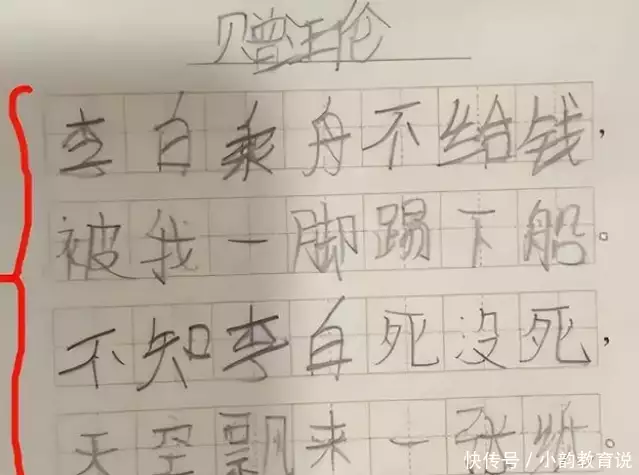 赠汪伦
李白乘舟不给钱，
被我一脚踢下船。
不知李白死没死，
天空飘来一张
快传号/小韵教育说